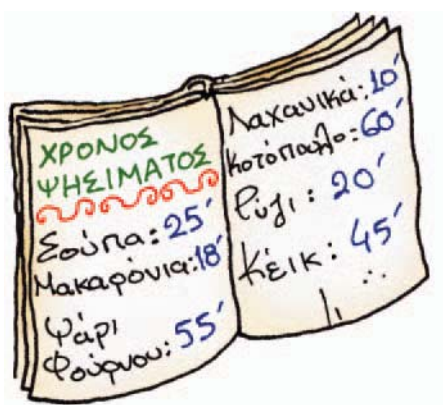 ΧΡΟΝΟΣ
ΨΗΣΙΜΑΤΟΣ
Σούπα: 25΄
Μακαρόνια: 18΄
Ψάρι
Φούρνου: 55΄
Λαχανικά: 10΄
Κοτόπουλο: 60΄
Ρύζι: 20΄
Κέικ: 45΄